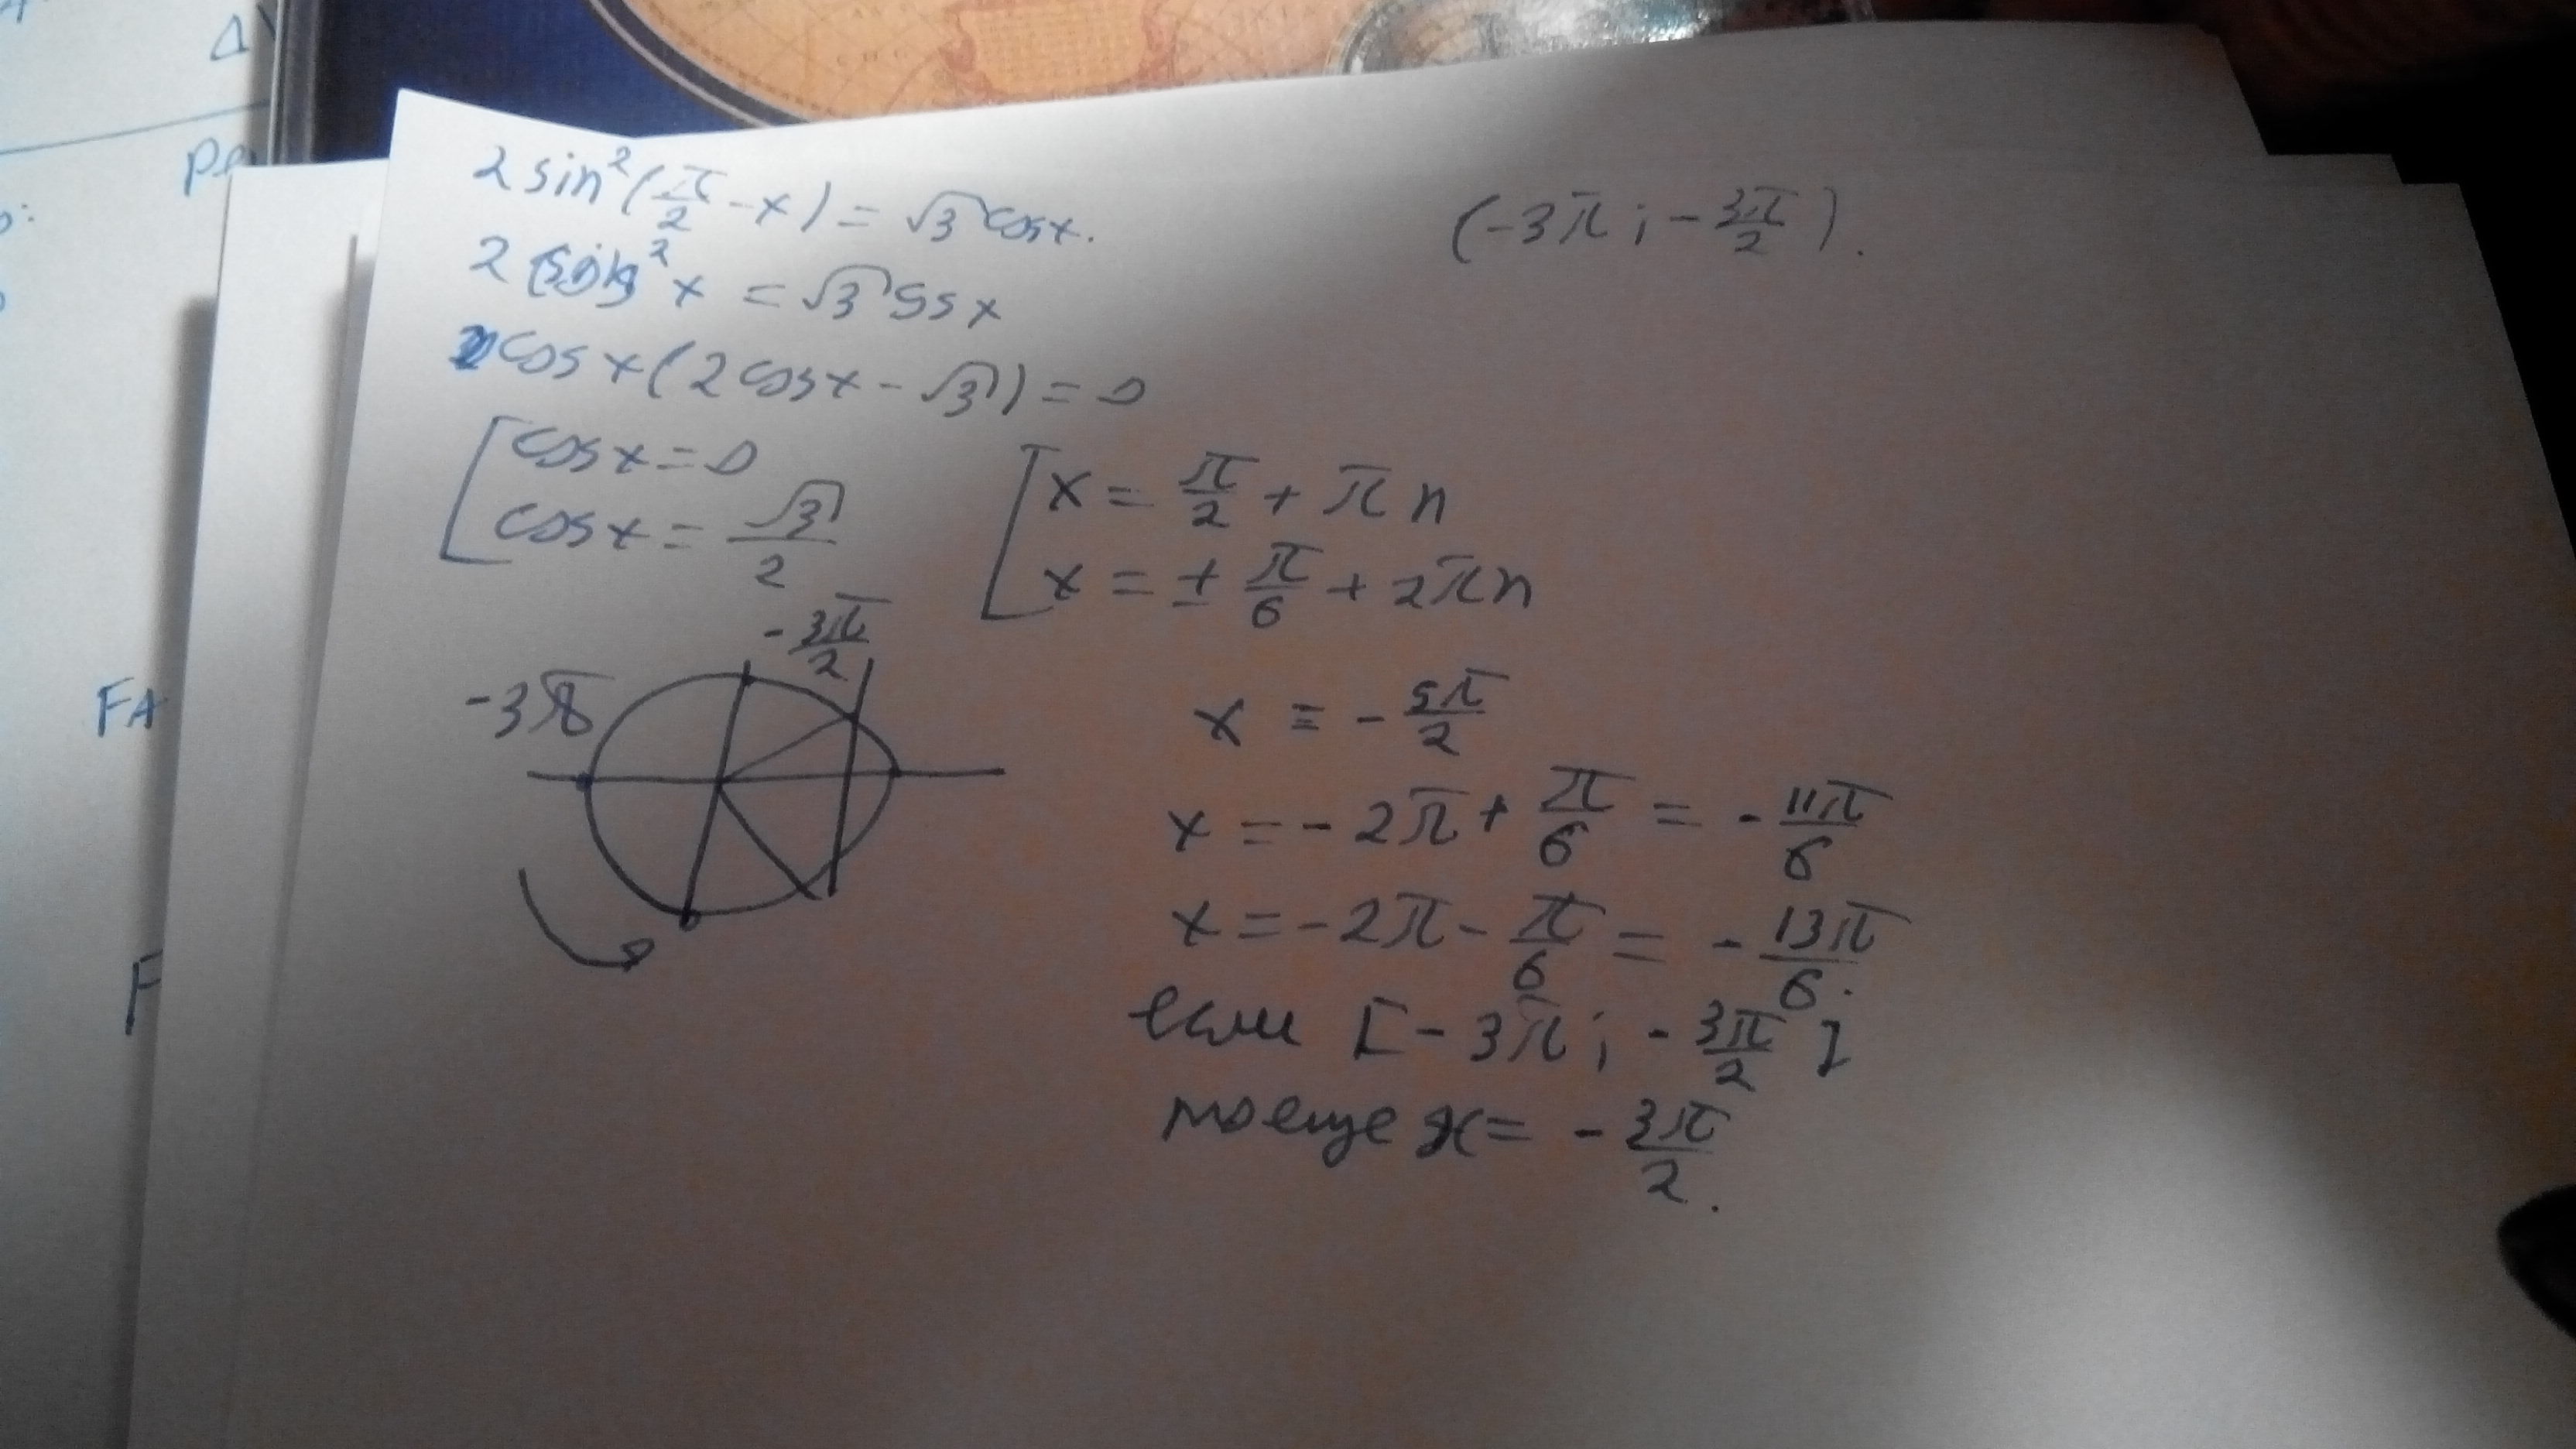 2 sin²(π/2 - x) = √3 cosx.
(-3π; -3π/2).
2 cos² x = √3 cos x
cos x (2 cosx - √3) = 0
[ cos x = 0
cos x = √3/2
[ x = π/2 + πn
x = ± π/6 + 2πn
-3π/2
-3π
x = -5π/2
x = -2π + π/6 = -11π/6
x = -2π - π/6 = -13π/6.
если [-3π; -3π/2]
то еще x = -3π/2.
FA
F
Δ